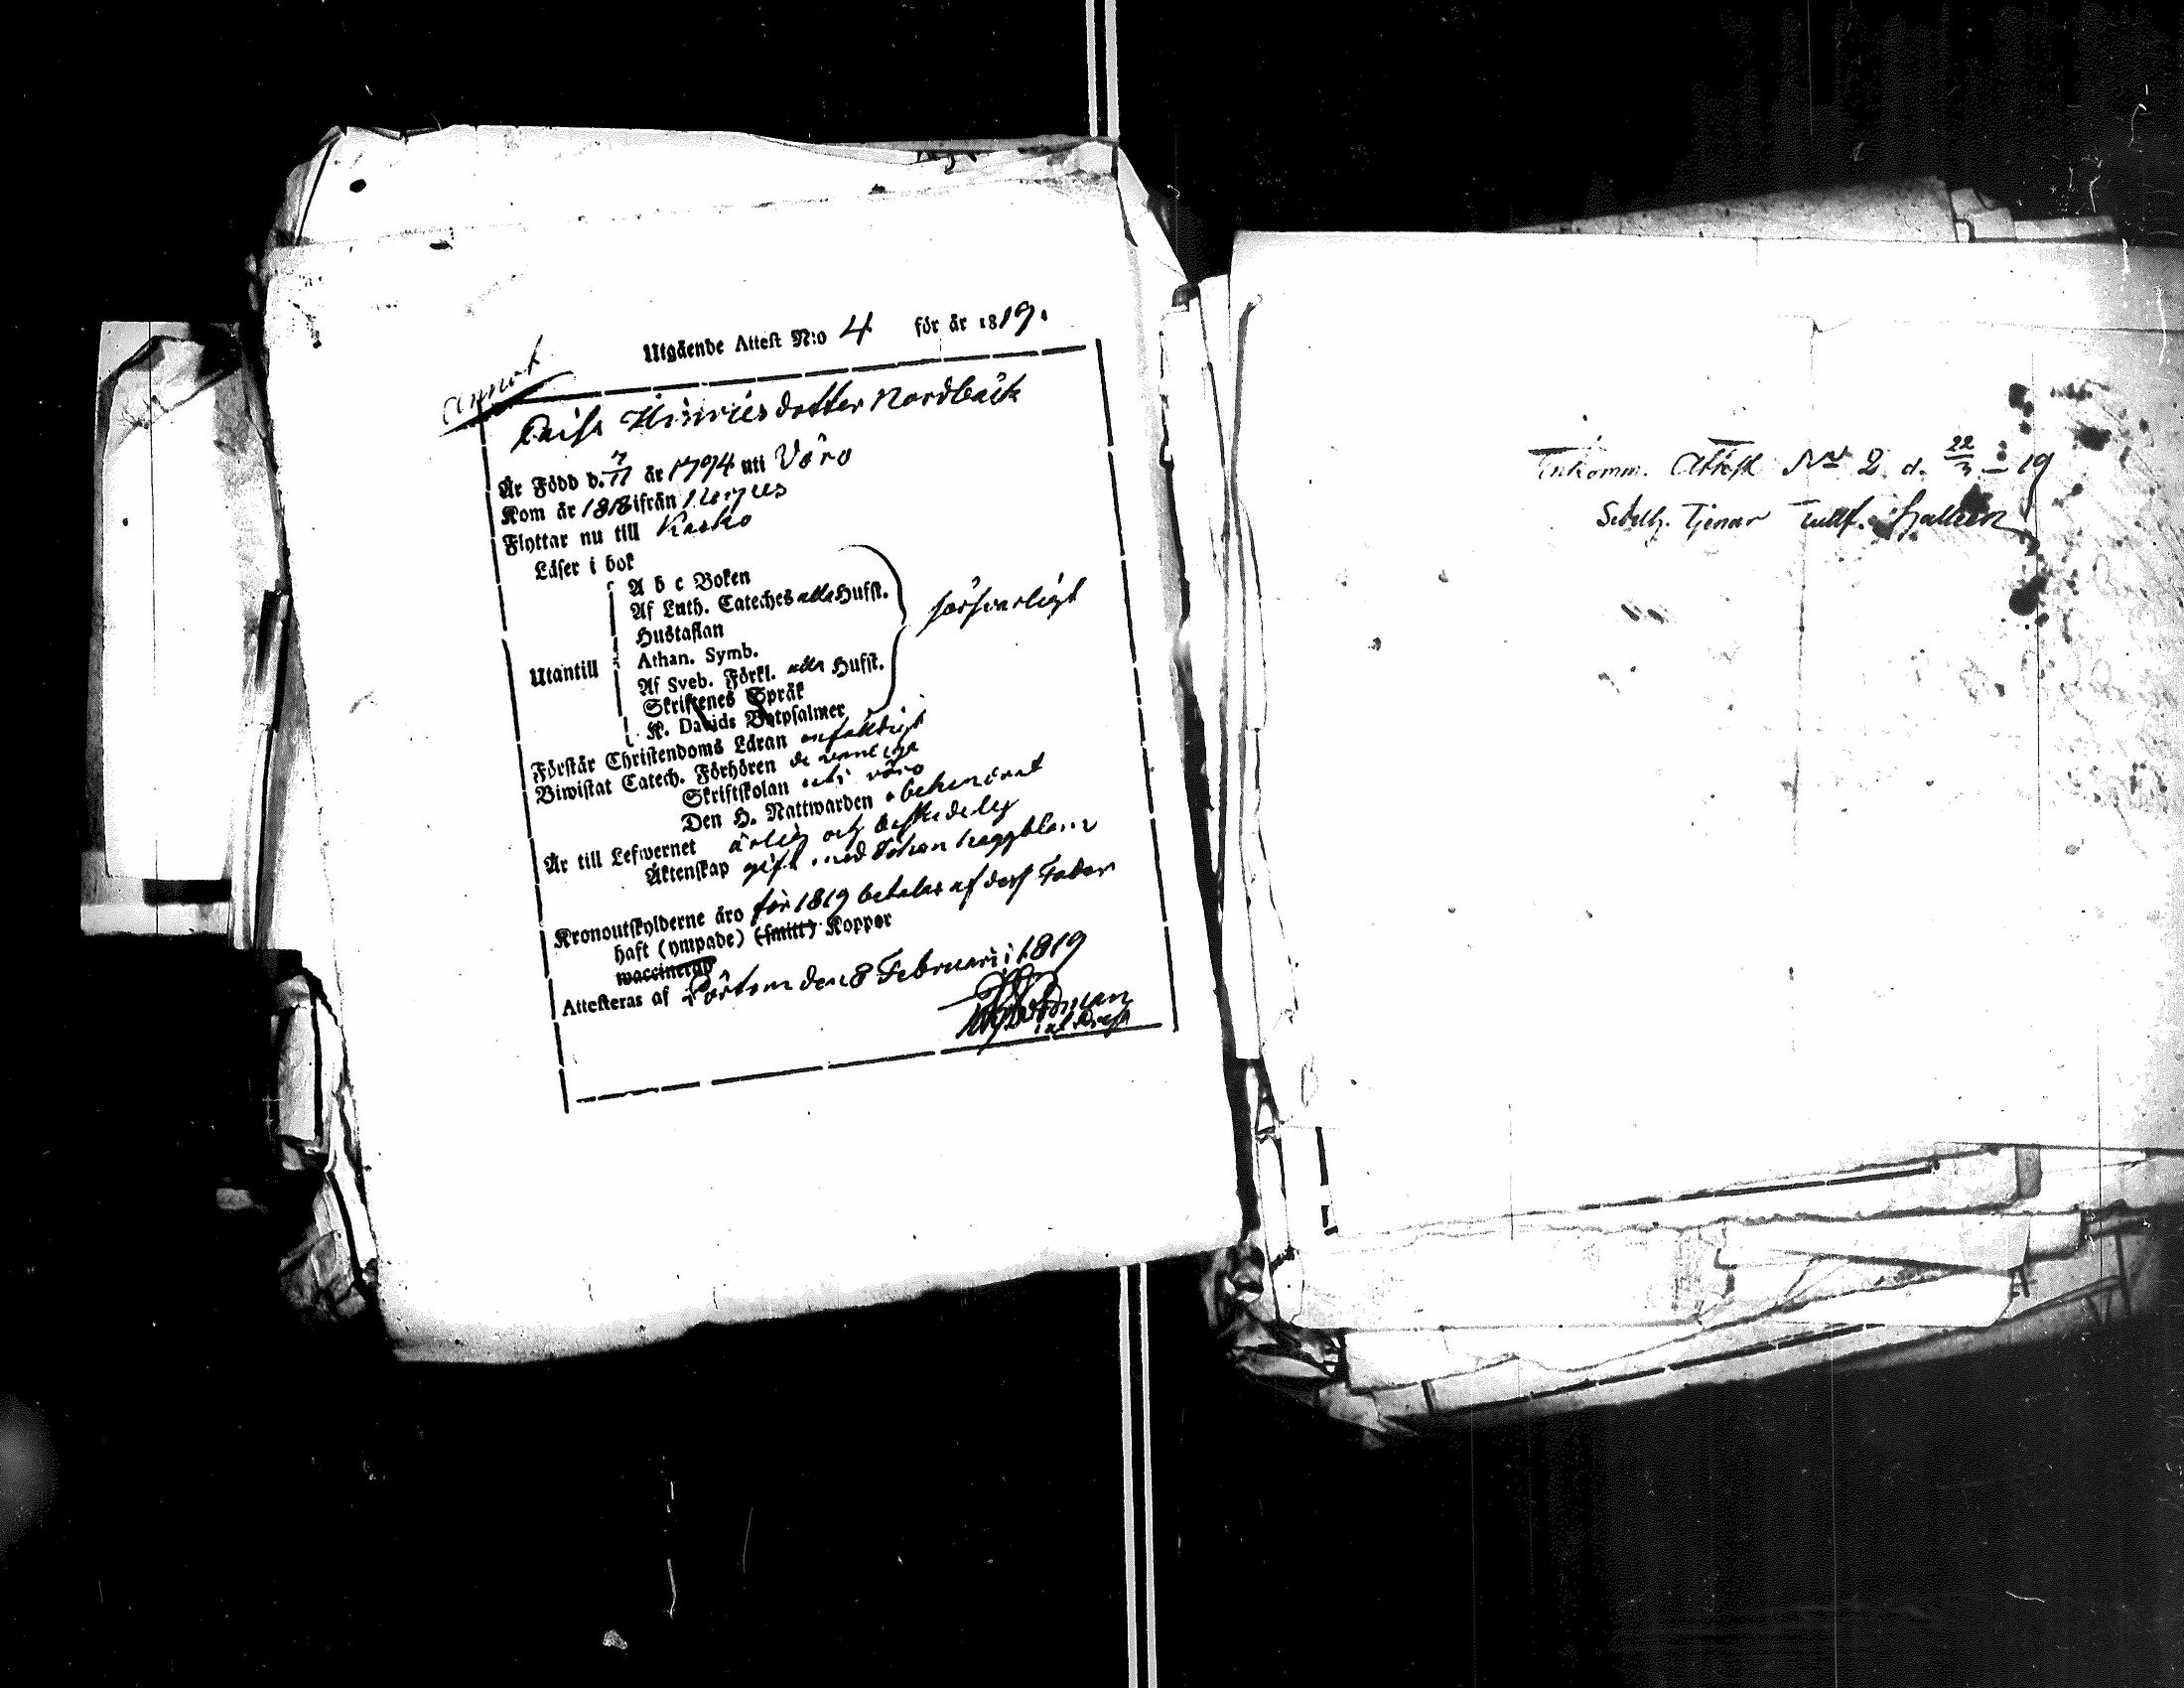 Utgående Attest N:o 4 för år 1819.
Caisa Hinricsdotter Nordbäck
År Född d. 7/11 år 1794 uti Vörå
Kom år 1818 ifrån
Flyttar nu till Kaskö
Läser i bok
A b c Boken
Af Luth. Cateches alla Hufst.
Hustaflan
försvarligt
Utantill
Athan. Symb.
Af Sveb. Förkl. alla Hufst.
Skriftenes Språk
K. Davids Botpsalmer
Förstår Christendoms Läran enfaldigt
Biwistat Catech. Förhören de vanliga
Skriftskolan uti Vörå
Den H. Nattwarden obehindrat
År till Lefwernet ärlig och beskedelig
Äktenskap gift med Johan Häggblom
Kronoutskylderne äro för 1819 betalas af dess Fader
haft (ympade) (smitt) Koppor
waccinerad
Attesteras af Pörtom den 8 Februari 1819
Inkomm. Attest No 2 d. 22/3 19
Tjenar Tullf.